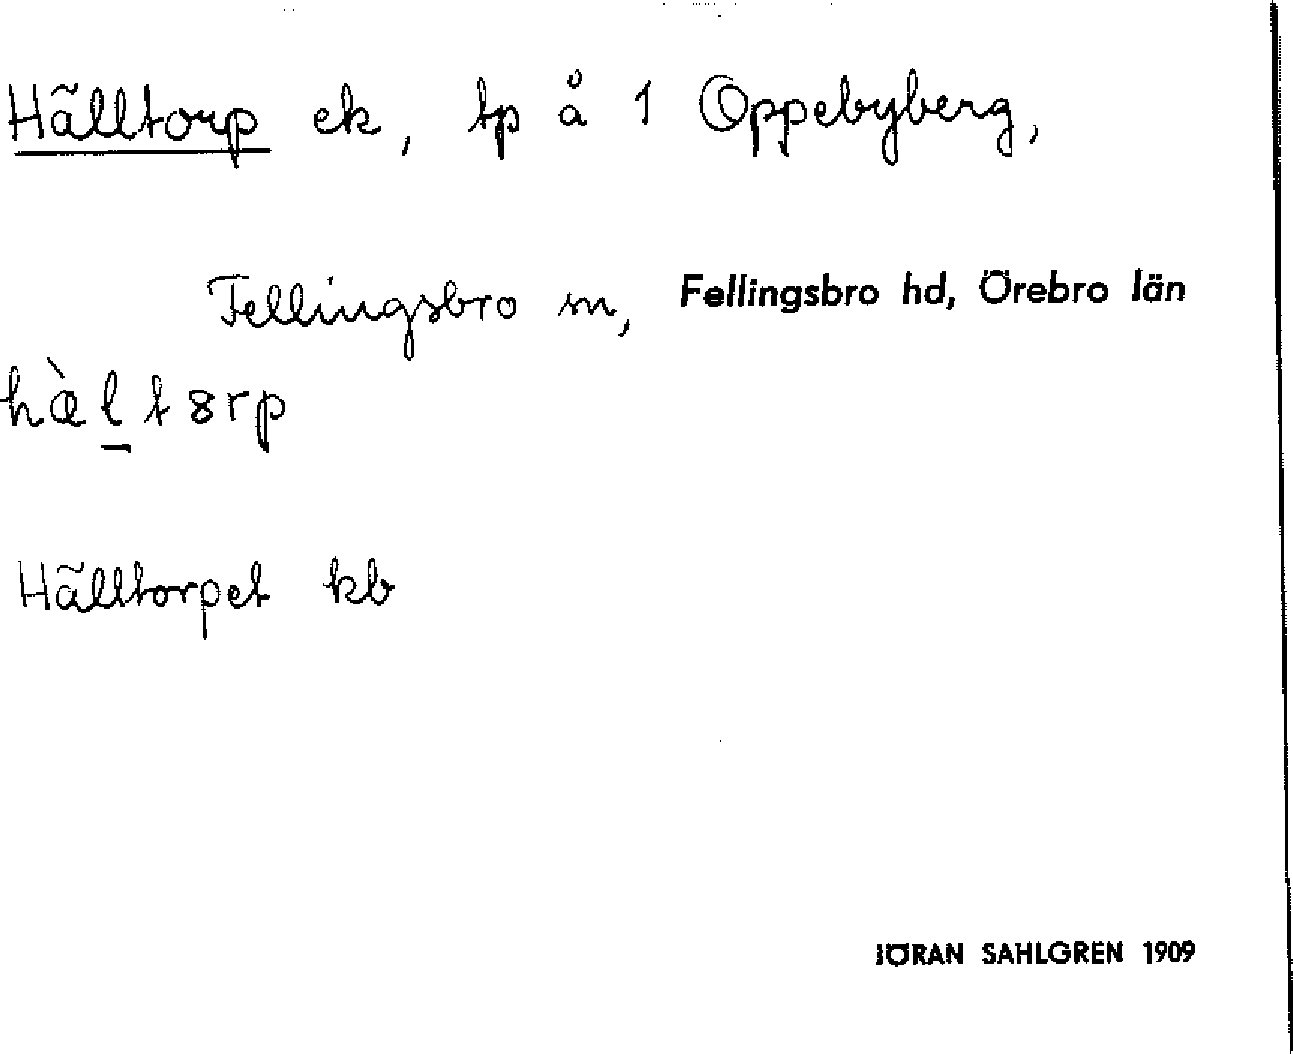 Hälltorp ek, tp å 1 Oppebyberg,
Fellingsbro sn, Fellingsbro hd, Örebro län
hæ̀l̠t8rp
Hälltorpet kb
JÖRAN SAHLGREN 1909